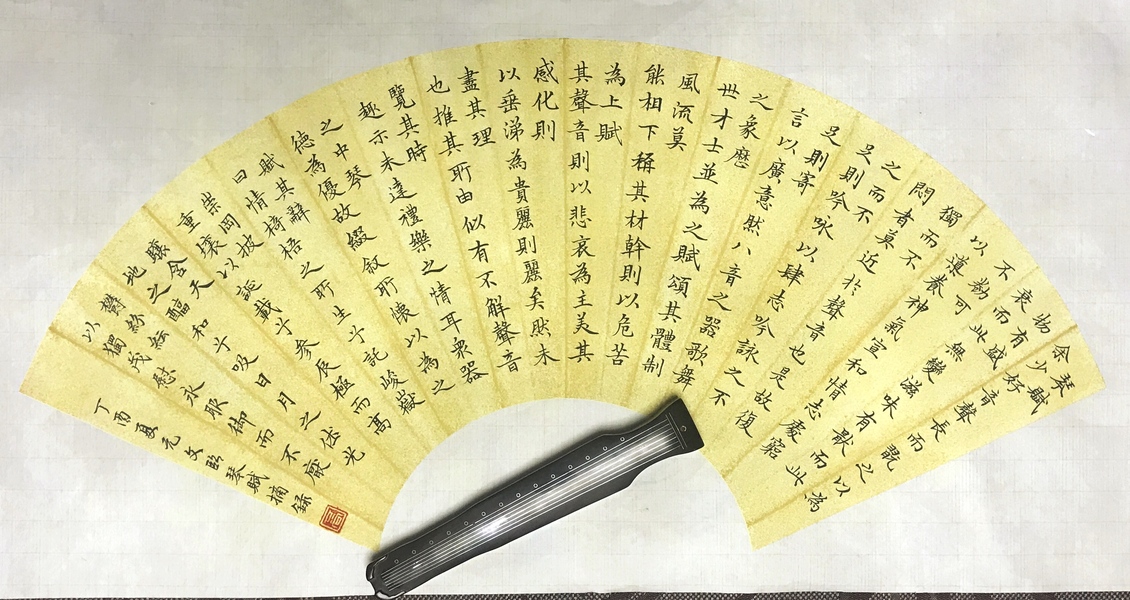 琴賦
余少好音聲長而翫之以為
物有盛
衰而此無變滋味有猒而此
不勌可
以導養神氣宣和情志處窮
獨而不
悶者莫近於聲音也是故復
之而不
足則吟咏以肆志吟詠之不
足則寄
言以廣意然八音之器歌舞
之象歷
世才士並為之賦頌其體制
風流莫
能相下稱其材幹則以危苦
為上賦
其聲音則以悲哀為主美其
感化則
以垂涕為貴麗則麗矣然未
盡其理
也推其所由似有不解聲音
覽其時
趣示未達禮樂之情耳衆器
之中琴
德為優故綴叙所懷以為之
賦其辭
曰情椅梧之所生乎託峻嶽
崇岡披
重壤以誕載乎參辰極而高
驤含天
地之醞和乎吸日月之休光
鬱紛紜
以獨茂慰永服御而不厭
丁酉夏元文臨琴賦摘錄